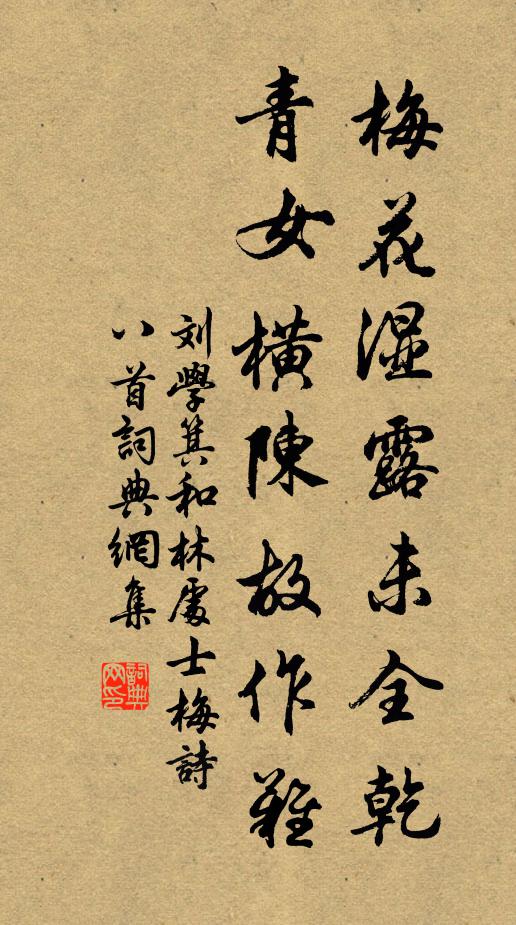 梅花湿露未全乾
青女橫陳故作難
刘學箕和林處士梅詩
八首詞典網集
詞典网印